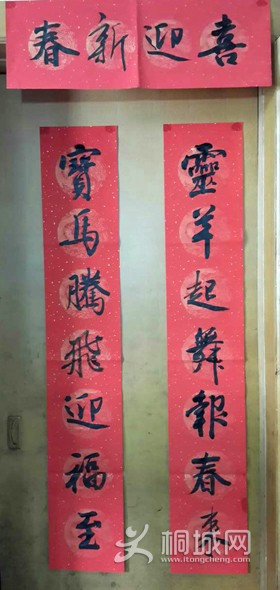 喜迎新春
靈羊起舞報春來
寶馬騰飛迎福至
桐城网
www.itongcheng.com